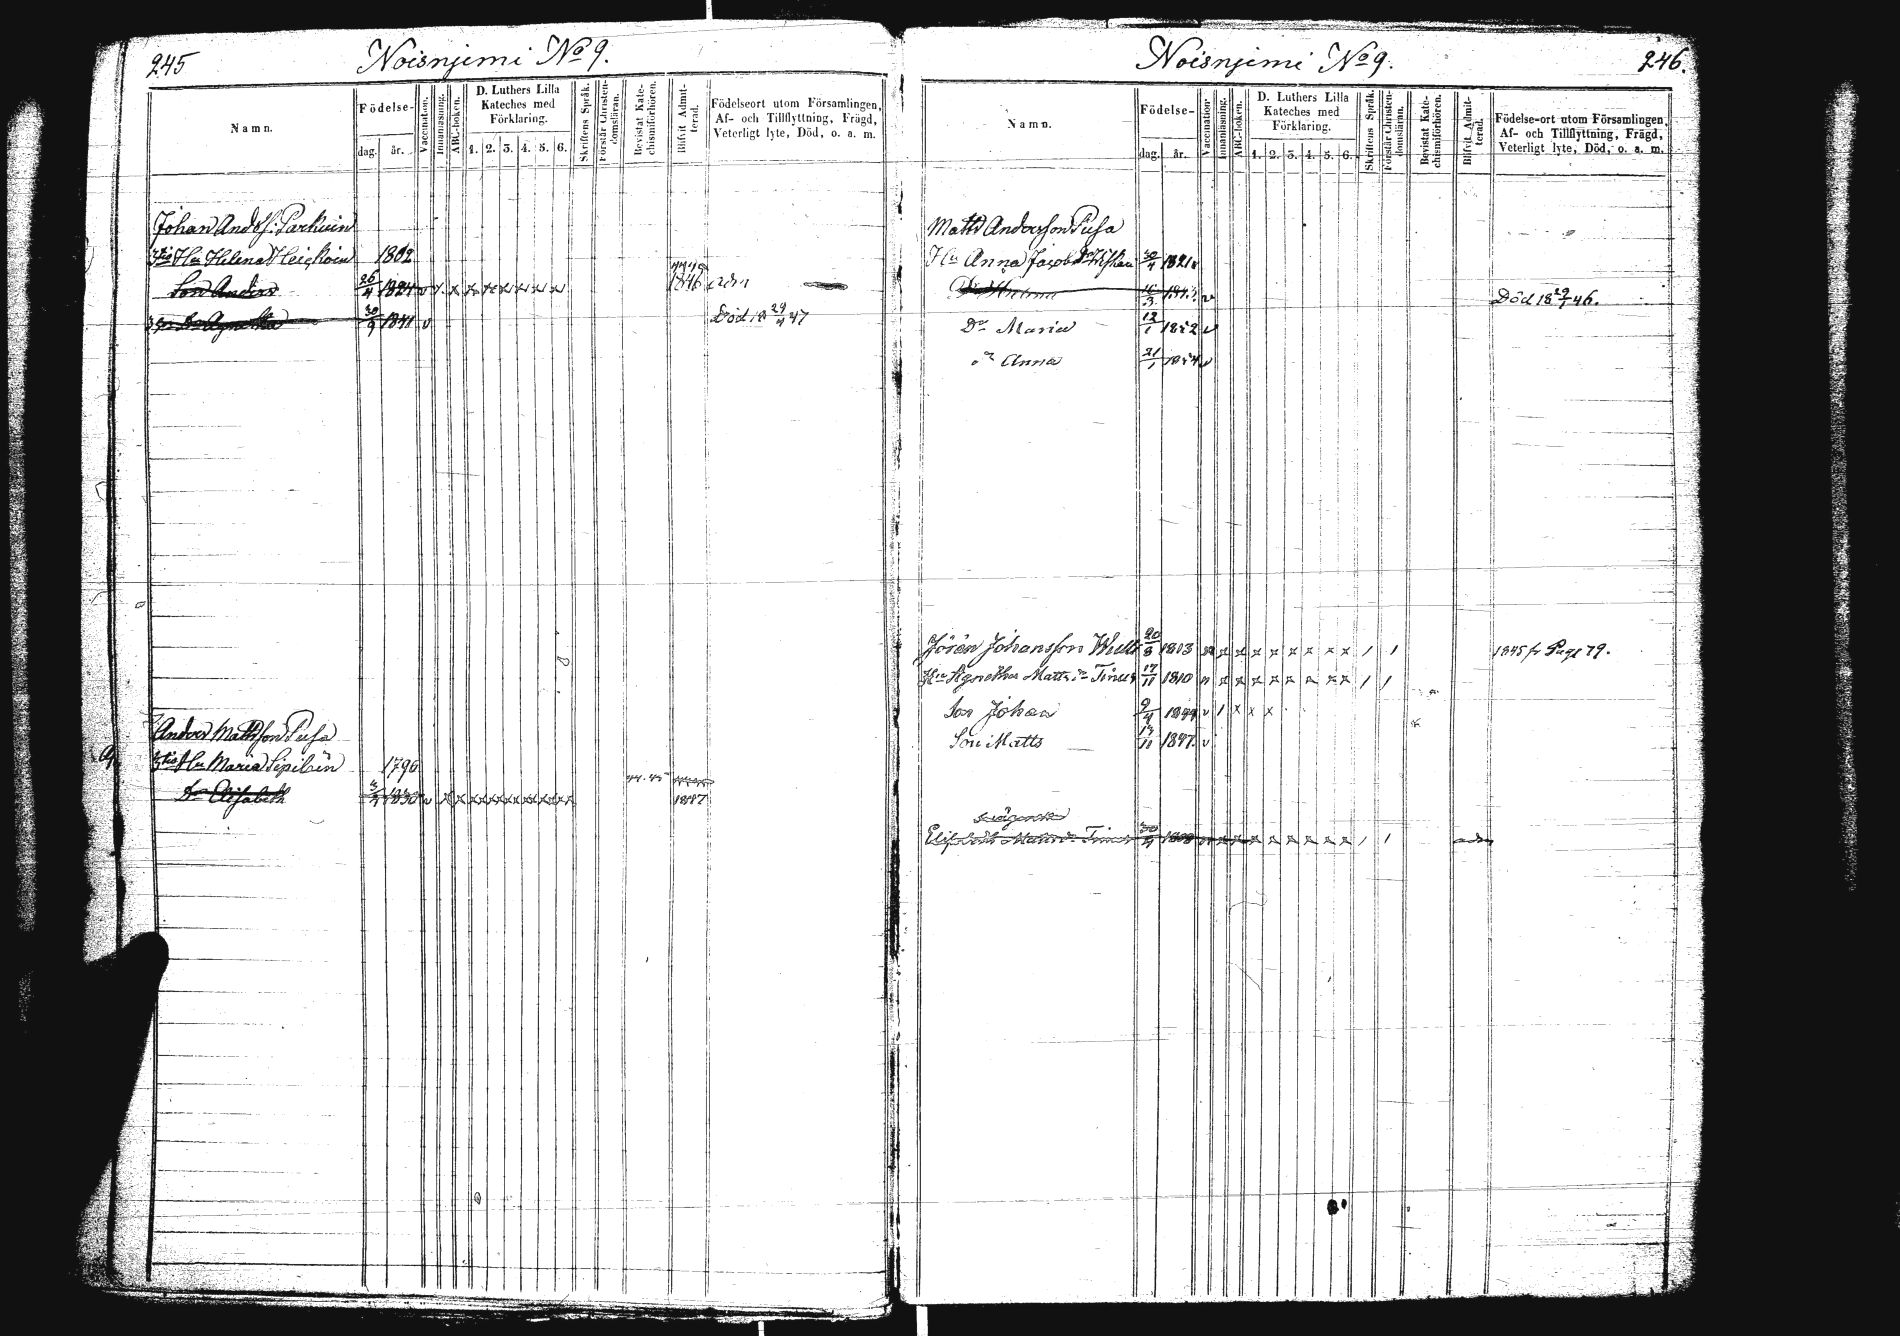 245
Noisnjemi No 9.
Namn. Födelse- dag. år. Vaccination. Innanläsning. ABC-boken. D. Luthers Lilla Kateches med Förklaring. 1. 2. 3. 4. 5. 6. Skriftens Språk. Förstår Christendomsläran. Bevistat Katechismiförhören. Blifvit Admitterad. Födelseort utom Församlingen, Af- och Tillflyttning, Frägd, Veterligt lyte, Död, o. a. m.
Johan Andsf: Parkuin
Hu Helena Heiskoin 1802
Son Anders 26/4 1824 v x x x x x x x 1846 adm
Dr Agnetha 30/9 1841 v Död 18 29/4 47
Anders Mattsson Pusa
Hu Maria Sipiläin 1796
Dr Elisabeth 1830 v x x x x x x x x 44. 45 1847
246.
Noisnjemi No 9.
Namn. Födelse- dag. år. Vaccination. Innanläsning. ABC-boken. D. Luthers Lilla Kateches med Förklaring. 1. 2. 3. 4. 5. 6. Skriftens Språk. Förstår Christendomsläran. Bevistat Katechismiförhören. Blifvit Admitterad. Födelse-ort utom Församlingen, Af- och Tillflyttning, Frägd, Veterligt lyte, Död, o. a. m.
Matts Andersson Pusa
Hu Anna Jacobsdr 30/4 1821
Död 18 29/7 46.
Dr Maria 12/1 1842 v
Dr Anna 21/1 1844 v
Jöran Johansson 20/8 1803 x x x x x x x x / / 1845 fr Page 79.
Hu Agnetha Mattsdr Tinus 17/11 1810 x x x x x x x x / /
Son Johan 9/4 1844 v / x x x
Son Matts 17/11 1847. v
Elisabeth Mattsdr Tinus 30/4 1808 x x x x x x x x / / adm